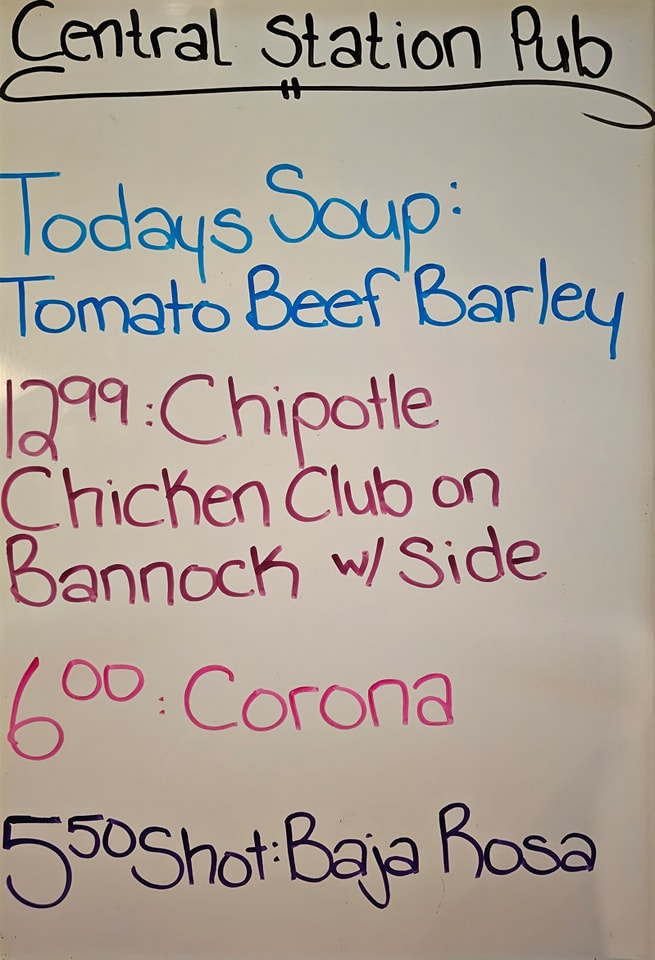 Central Station Pub
Todays Soup:
Tomato Beef Barley
12.99: Chipotle
Chicken Club on
Bannock w/ Side
6.00: Corona
5.50 Shot: Baja Rosa